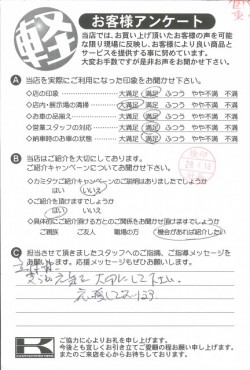 軽
お客様アンケート
当店では、お買い上げ頂いたお客様の声を可能
な限り現場に反映し、お客様により良い商品と
サービスを提供する事に努めています。
大変お手数ですが是非お声をお聞かせ下さい。
A 当店を実際にご利用になった印象をお聞かせ下さい。
◇店の印象 大満足 満足 ふつう やや不満 不満
◇店内・展示場の清掃 大満足 満足 ふつう やや不満 不満
◇お車の品揃え 大満足 満足 ふつう やや不満 不満
◇営業スタッフの対応 大満足 満足 ふつう やや不満 不満
◇納車時のお車の状態 大満足 満足 ふつう やや不満 不満
B 当店はご紹介を大切にしております。
ご紹介キャンペーンについてお聞かせ下さい。
◇カミタケご紹介キャンペーンのご説明はありましたでしょうか
はい いいえ
◇ご紹介を頂けますでしょうか
はい いいえ
◇具体的にご紹介頂ける方とのご関係をお聞かせ頂けますでしょうか
ご親族 ご友人 職場の方 機会があれば紹介したい
C 担当させて頂きましたスタッフへのご指摘、ご指導メッセージを
お願いします。応援メッセージもぜひお願いします。
元気で
応援しております
K
ご協力に心よりお礼を申し上げます。
今後とも宜しくお引き立てご愛顧の程お願い申し上げます。
またのご来店を心からお待ちしております。